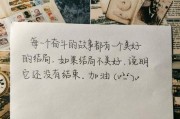 每个奋斗的故事都有一个美好
的结局、如果结局不美好、说明
它还没有结束、加油